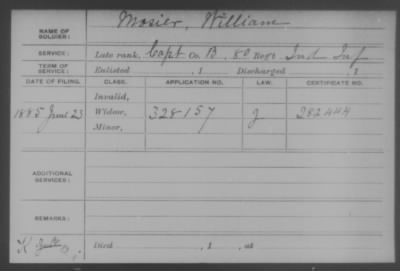 NAME OF SOLDIER: Mosier, William
SERVICE: Late rank, Capt Co. B, 80 Reg't Ind Inf
TERM OF SERVICE: Enlisted , 1 Discharged , 1
DATE OF FILING. CLASS. APPLICATION NO. LAW. CERTIFICATE NO.
Invalid,
1885 June 23 Widow, 328157 g 282444
Minor,
ADDITIONAL SERVICES:
REMARKS:
Died , 1 , at